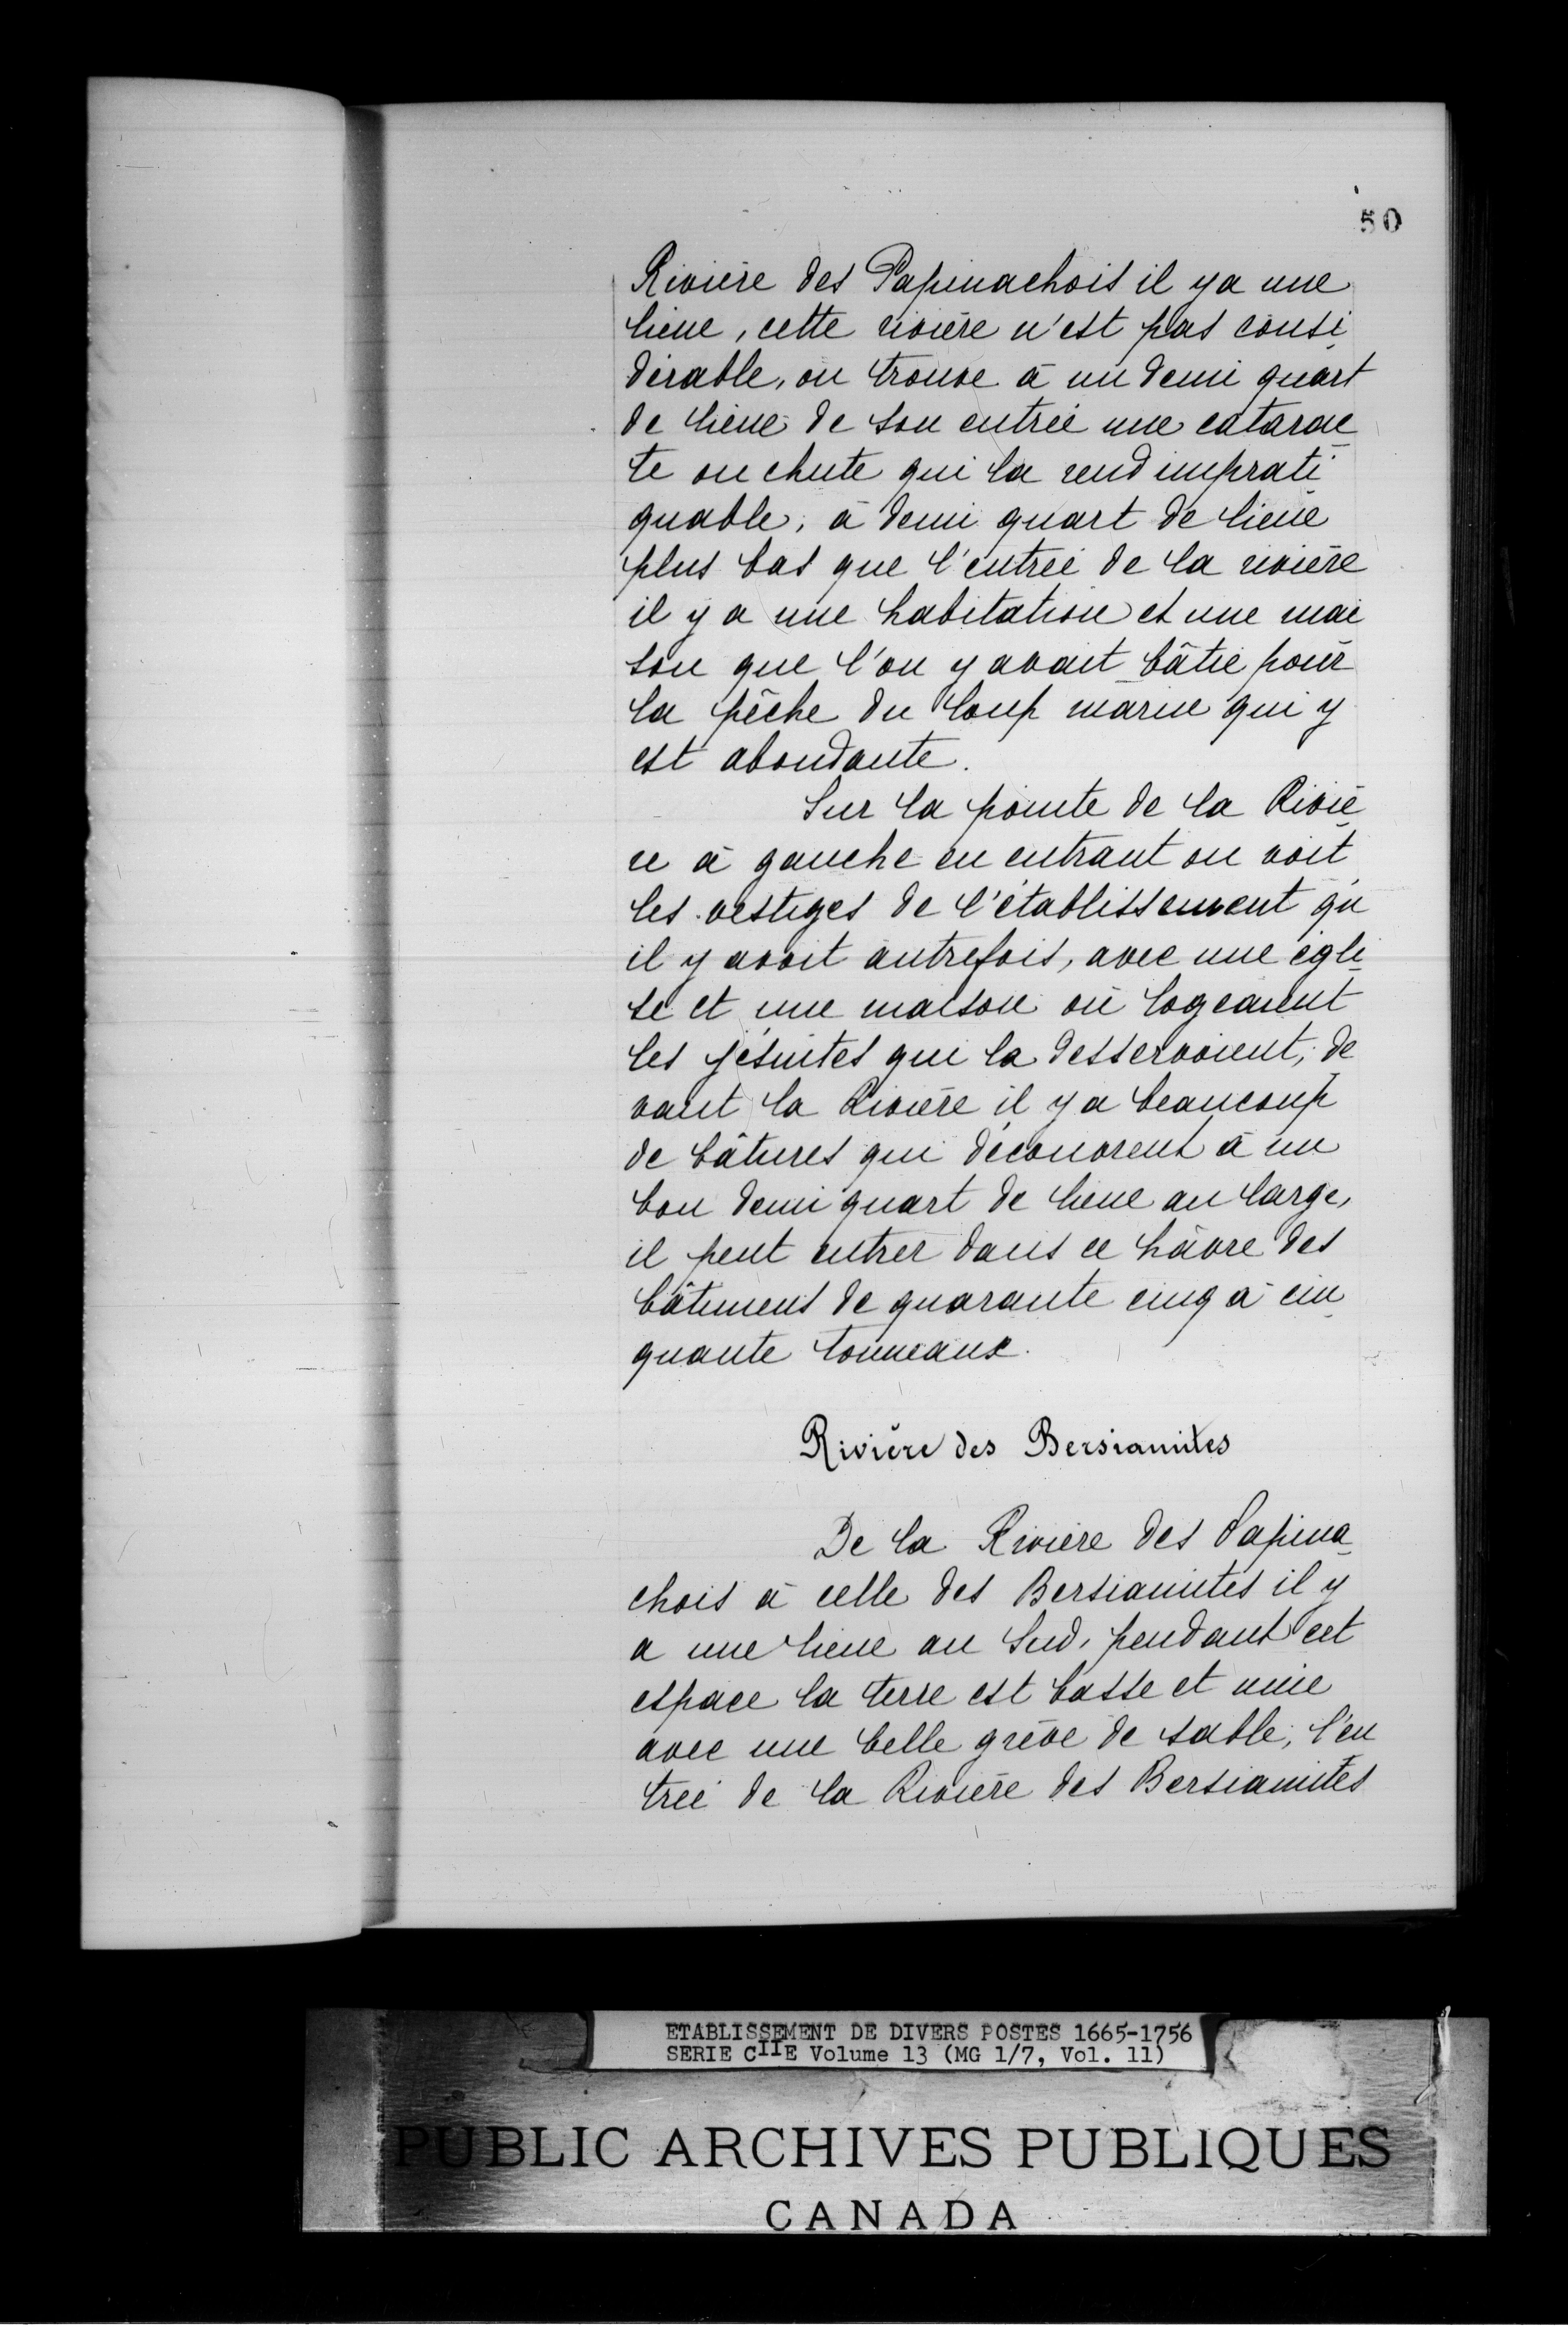 50
Rivière des Papinachois il y a une
lieue, cette rivière n'est pas consi
dérable, on trouve à un demi quart
de lieue de son entrée une catarac
te ou chute qui la rend imprati
quable; à demi quart de lieue
plus bas que l'entrée de la rivière
il y a une habitation et une mai
son que l'on y avait bâtie pour
la pêche du loup marin qui y
est abondante.
Sur la pointe de la Riviè
re à gauche en entrant on voit
les vestiges de l'établissement qu'
il y avoit autrefois, avec une égli
se et une maison où logeaient
les jésuites qui la desservoient, de
vant la Rivière il y a beaucoup
de bâtures qui découvrent à un
bon demi quart de lieue au large,
il peut entrer dans ce hâvre des
bâtiments de quarante cinq à cin
quante tonneaux.
Rivière des Bersiamites
De la Rivière des Papina
chois à celle des Bersiamites il y
a une lieue au Sud, pendant cet
espace la terre est basse et unie
avec une belle grève de sable, l'en
trée de la Rivière des Bersiamites
ETABLISSEMENT DE DIVERS POSTES 1665-1756
SERIE CIIE Volume 13 (MG 1/7, Vol. 11)
PUBLIC ARCHIVES PUBLIQUES
CANADA